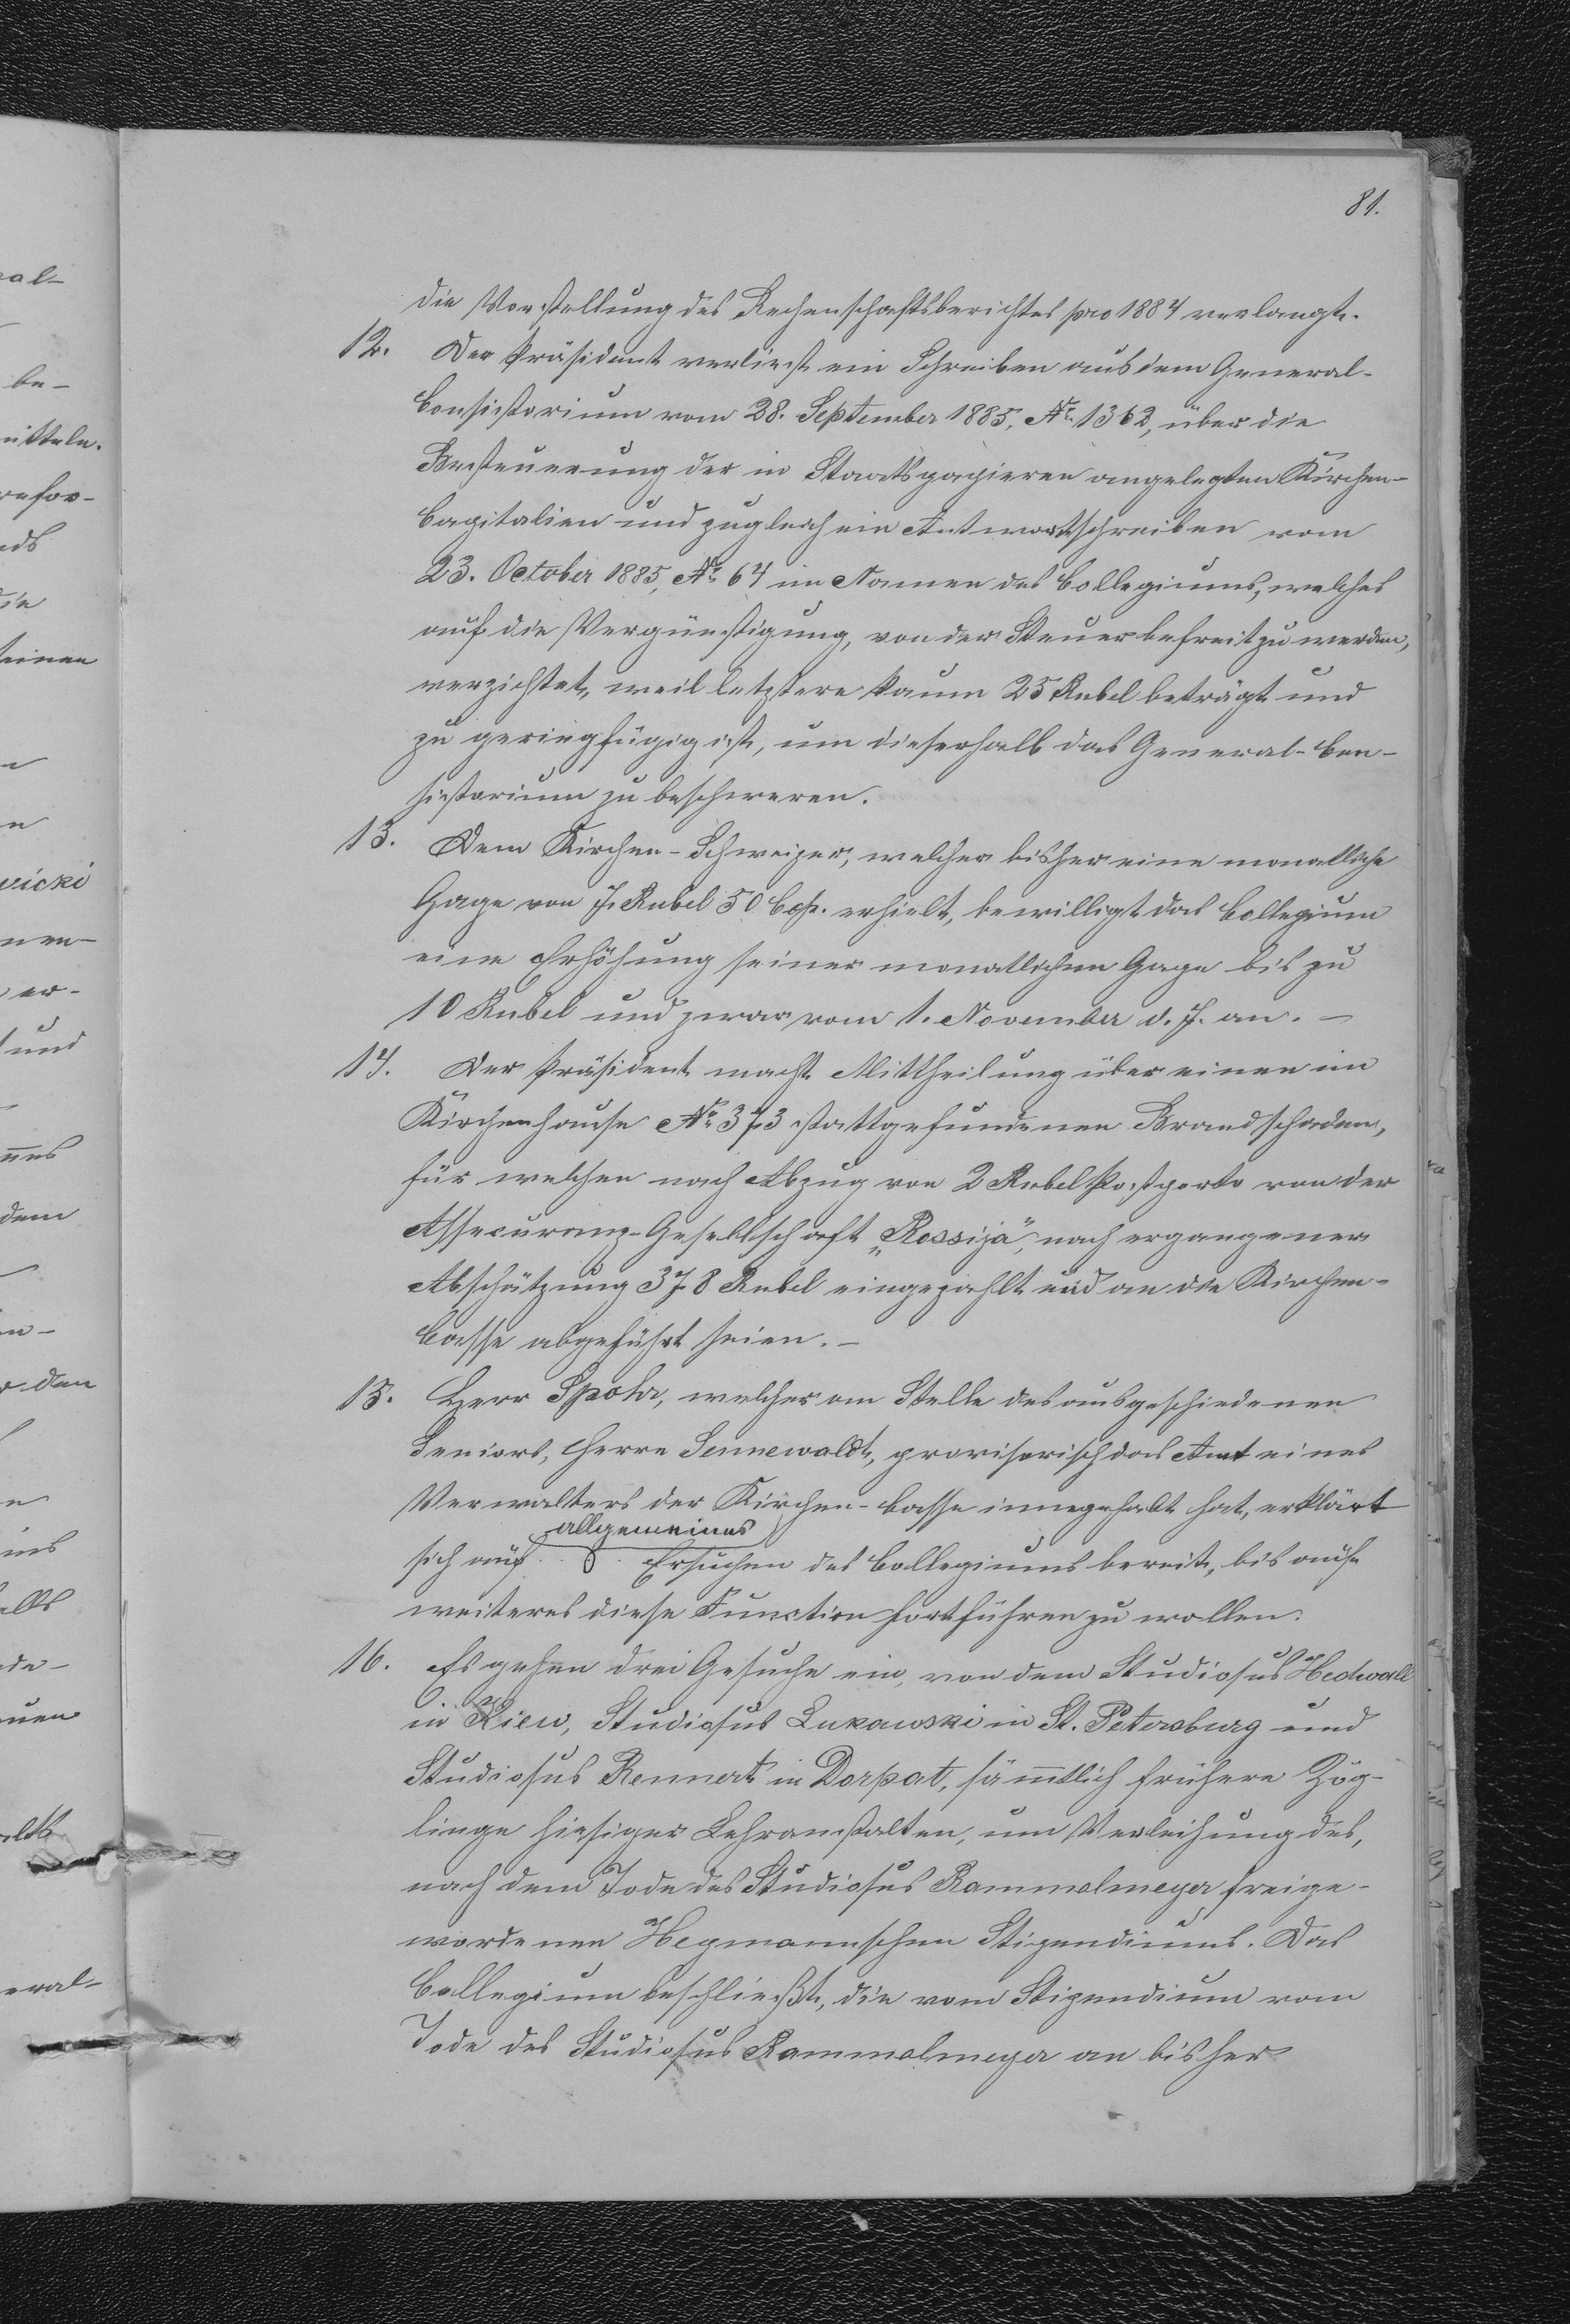 81.
die Vorstellung des Rechenschaftsberichtes pro 1884 verlangt.
12. Der Präsident verliest ein Schreiben aus dem General-
Consistorium vom 28. September 1885, № 1362, über die
Besteuerung der in Staatspapieren angelegten Kirchen-
Capitalien und zugleich ein Antwortschreiben vom
23. October 1885, № 64 im Namen des Collegiums, welches
auf die Vergünstigung, von der Steuer befreit zu werden,
verzichtet, weil letztere kaum 25 Rubel beträgt und
zu geringfügig ist, um dieserhalb das General-Con-
sistorium zu beschweren.
13. Dem Kirchen-Schweizer, welcher bisher eine monatliche
Gage von 7. Rubel 50 Cop. erhielt, bewilligt das Collegium
eine Erhöhung seiner monatlichen Gage bis zu
10 Rubel und zwar vom 1. November d. J. an. –
14. Der Präsident macht Mittheilung über einen im
Kirchenhause № 373 stattgefundenen Brandschaden,
für welchen nach Abzug von 2 Rubel Postporto von der
Assecuranz-Gesellschaft „Rossija", nach ergangener
Abschätzung 378 Rubel eingezahlt und an die Kirchen-
Casse abgeführt seien. –
15. Herr Spohr, welcher an Stelle des ausgeschiedenen
Seniors, Herrn Sennewaldt, provisorisch das Amt eines
Verwalters der Kirchen-Casse innegehabt hat, erklärt
allgemeines
sich auf Ersuchen des Collegiums bereit, bis auf
weiteres diese Function fortführen zu wollen.
16. Es gehen drei Gesuche ein, von dem Studiosus Hedwall
in Kiew, Studiosus Lukawski in St. Petersburg und
Studiosus Rennert in Dorpat, sämmtlich frühere Zög-
linge hiesiger Lehranstalten, um Verleihung des,
nach dem Tode des Studiosus Rammelmeyer freige-
wordenen Hegmannschen Stipendiums. Das
Collegium beschließt, die vom Stipendium vom
Tode des Studiosus Rammelmeyer an bisher